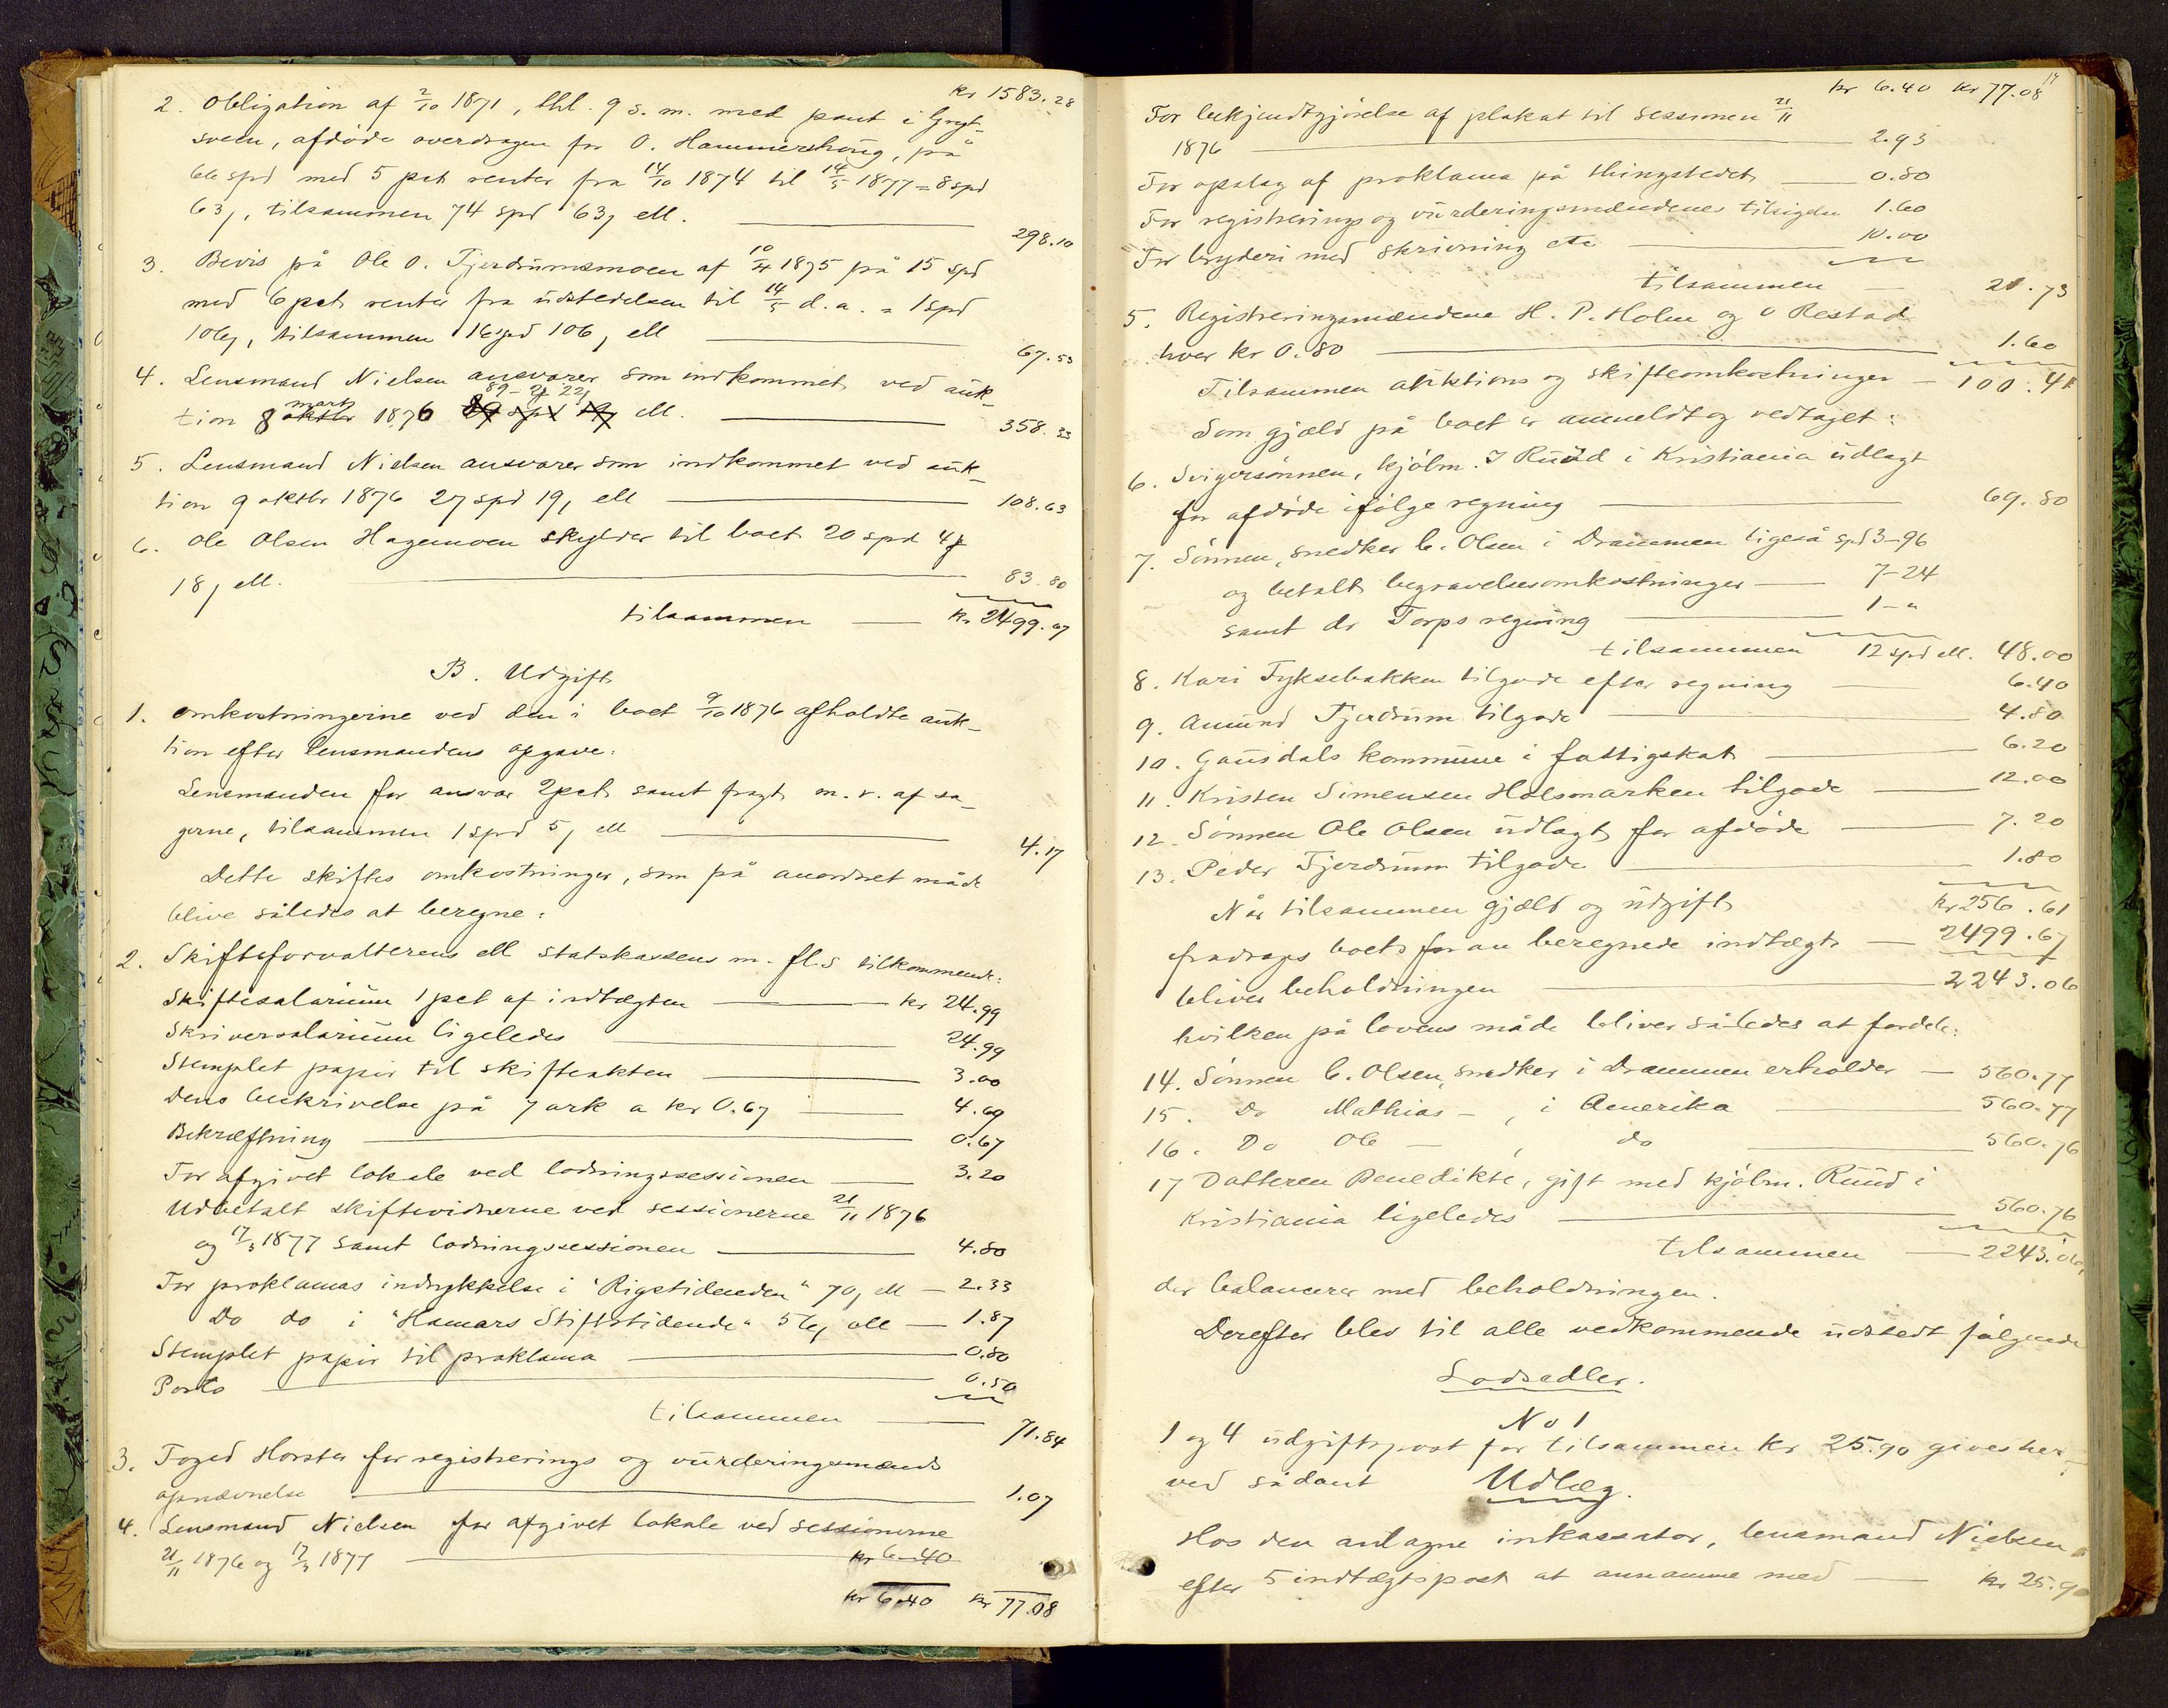 kr 1583.28
2. Obligation af 2/10 1871, thl. 9 s. m. med pant i Gryt-
sveen, afdøde overdragen fra O. Hammershaug, på
66 spd med 5 pct renter fra 14/10 1874 til 14/5 1877 = 8 spd
63 ƒ, tilsammen 74 spd 63 ƒ ell. 298.10
3. Bevis på Ole O. Fjerdumsmoen af 10/4 1875 på 15 spd
med 6 pct renter fra udstedelsen til 14/5 d. a. = 1 spd
106 ƒ, tilsammen 16 spd 106 ƒ ell 67.53
4. Lensmand Nielsen ansvarer som indkommet ved auk-
tion 8 marts 1876 89 - 2 ƒ 22 ƒ ell. 358.33
5. Lensmand Nielsen ansvarer som indkommet ved auk-
tion 9 oktbr 1876 27 spd 19 ƒ ell 108.63
6. Ole Olsen Hagemoen skylder til boet 20 spd 4 ƒ
18 ƒ ell. 83.80
tilsammen kr 2499.67
B. Udgift
1. Omkostningerne ved den i boet 9/10 1876 afholdte auk-
tion efter lensmandens opgave:
Lensmanden for ansvar 2 pct samt fragt m. v. af sa-
gerne, tilsammen 1 spd 5 ƒ ell 4.17
Dette skiftes omkostninger, som på anordnet måde
blive således at beregne:
2. Skifteforvalterens ell statskassens m. fl.s tilkommende:
Skiftesalarium 1 pct af indtægten kr 24.99
Skriversalarium ligeledes 24.99
Stemplet papir til skifteakten 3.00
Dens beskrivelse på 7 ark a kr 0.67 4.69
Bekræftning 0.67
For afgivet lokale ved lodningssessionen 3.20
Udbetalt skiftevidnerne ved sessionerne 21/11 1876
og 17/3 1877 samt lodningssessionen 4.80
For proklamas indrykkelse i "Rigstidenden" 70 ƒ ell 2.33
Do do i "Hamars Stiftstidende" 56 ƒ ell 1.87
Stemplet papir til proklama 0.80
Porto 0.50
tilsammen 71.84
3. Foged Horster for registrerings og vurderingsmænds
opnævnelse 1.07
4. Lensmand Nielsen for afgivet lokale ved sessionerne
21/11 1876 og 17/3 1877 kr 6.40
kr 6.40 kr 77.08
17
kr 6.40 kr 77.08
For bekjendtgjørelse af plakat til sessionen 21/11
1876 2.93
For opslag af proklama på thingstedet 0.80
For registrerings og vurderingsmændenes tilsigelse 1.60
For bryderi med skrivning etc 10.00
tilsammen 21.73
5. Registreringsmændene H. P. Holm og O Restad
hver kr 0.80 1.60
Tilsammen auktions og skifteomkostninger 100.41
Som gjæld på boet er anmeldt og vedtaget:
6. Svigersønnen, kjøbm. J Ruud i Kristiania udlagt
for afdøde ifølge regning 69.80
7. Sønnen, snedker C. Olsen i Drammen ligeså spd 3-96
og betalt begravelsesomkostninger 7-24
samt dr Torps regning 1-"
tilsammen 12 spd ell. 48.00
8. Kari Fyksebakken tilgode efter regning 6.40
9. Amund Fjerdum tilgode 4.80
10. Gausdals kommune i fattigskat 6.20
11. Kristen Simensen Holsmarken tilgode 12.00
12. Sønnen Ole Olsen udlagt for afdøde 7.20
13. Peder Fjerdum tilgode 1.80
Når tilsammen gjæld og udgift kr 256.61
fradrages boets foran beregnede indtægt 2499.67
blives beholdningen 2243.06
hvilken på lovens måde bliver således at fordele:
14. Sønnen C. Olsen, snedker i Drammen erholder 560.77
15. Do Mathias - , i Amerika 560.77
16. Do Ole - , do 560.76
17 Datteren Benedikte, gift med kjøbm. Ruud i
Kristiania ligeledes 560.76
tilsammen 2243.06,
der balancerer med beholdningen.
Derefter blev til alle vedkommende udstedt følgende
Lodsedler.
No 1
1 og 4 udgiftspost for tilsammen kr 25.90 gives her-
ved sådant Udlæg.
Hos den antagne inkassator, lensmand Nielsen
efter 5 indtægtspost at annamme med kr 25.90